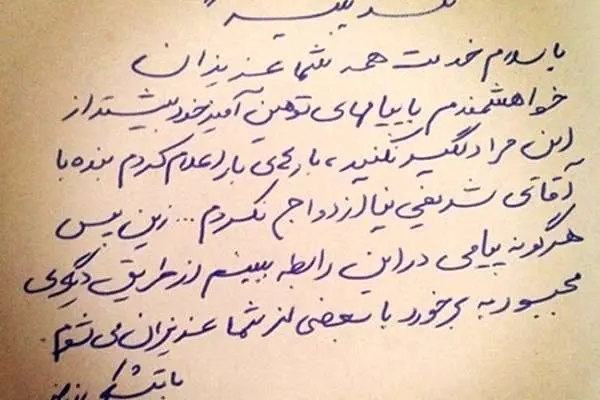 با سلام خدمت همه شما عزیزان
خواهشمندم با پیامهای توهین آمیز خود بیشتر از
این مرا دلگیر نکنید، بارهای بار اعلام کردم بنده با
آقای شریفی نیا ازدواج نکردم... زین پس
هرگونه پیامی در این رابطه ببینم از طریق دیگری
مجبور به برخورد با بعضی از شما عزیزان می شوم.
با تشکر